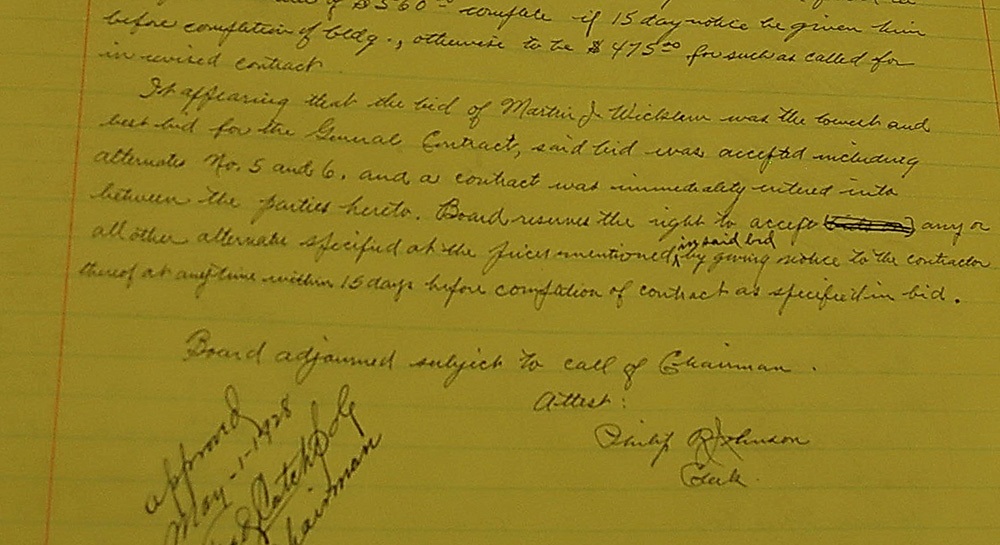 of $560.00 complete if 15 day notice be given him
before completion of bldg., otherwise to be $475.00 for such as called for
in revised contract
It appearing that the bid of Martin J. Wicklem was the lowest and
best bid for the General Contract, said bid was accepted including
alternates No. 5 and 6. and a contract was immediately entered into
between the parties hereto. Board reserves the right to accept any or
all other alternates specified at the prices mentioned in said bid by giving notice to the contractor
thereof at anytime within 15 days before completion of contract as specified in bid.
Board adjourned subject to call of Chairman.
Attest:
Philip R Johnson
Clerk.
approved
May-1-1928
Chairman